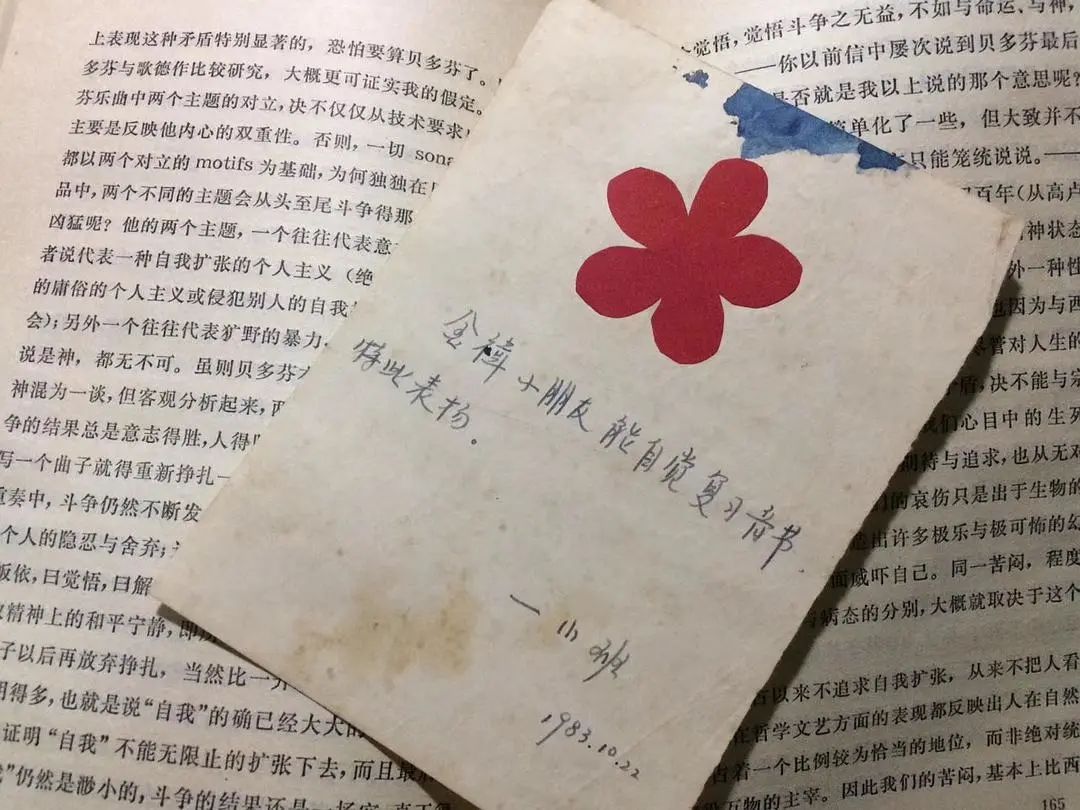 上表现这种矛盾特别显著的，恐怕要算贝多芬了。
多芬与歌德作比较研究，大概更可证实我的假定。
芬乐曲中两个主题的对立，决不仅仅从技术要求
主要是反映他内心的双重性。否则，一切 sona
都以两个对立的 motifs 为基础，为何独独在
品中，两个不同的主题会从头至尾斗争得那
凶猛呢？他的两个主题，一个往往代表意
者说代表一种自我扩张的个人主义（绝
的庸俗的个人主义或侵犯别人的自我
会）；另外一个往往代表犷野的暴力
说是神，都无不可。虽则贝多芬
神混为一谈，但客观分析起来，
争的结果总是意志得胜，人得
写一个曲子就得重新挣扎一
重奏中，斗争仍然不断发
个人的隐忍与舍弃；
皈依，曰觉悟，曰解
精神上的和平宁静，
子以后再放弃挣扎，当然比一
用得多，也就是说“自我”的确已经大大的
证明“自我”不能无限止的扩张下去，而且最
”仍然是渺小的，斗争的结果还是一场空
小朋友能自觉复习音节
特此表扬。
一小班
1983.10.22
觉悟，觉悟斗争之无益，不如与命运、与神，
——你以前信中屡次说到贝多芬最后
是否就是我以上说的那个意思呢？
简单化了一些，但大致并不
只能笼统说说。——
百年（从高卢
神状态
外一种性
也因为与西
尽管对人生的
矛盾，决不能与宗
我们心目中的生死
期待与追求，也从无对
们的哀伤只是出于生物的
造出许多极乐与极可怖的幻
面威吓自己。同一苦闷，程度
与病态的分别，大概就取决于这个
古以来不追求自我扩张，从来不把人看
在哲学文艺方面的表现都反映出人在自然
占着一个比例较为恰当的地位，而非绝对统
万物的主宰。因此我们的苦闷，基本上比西
165